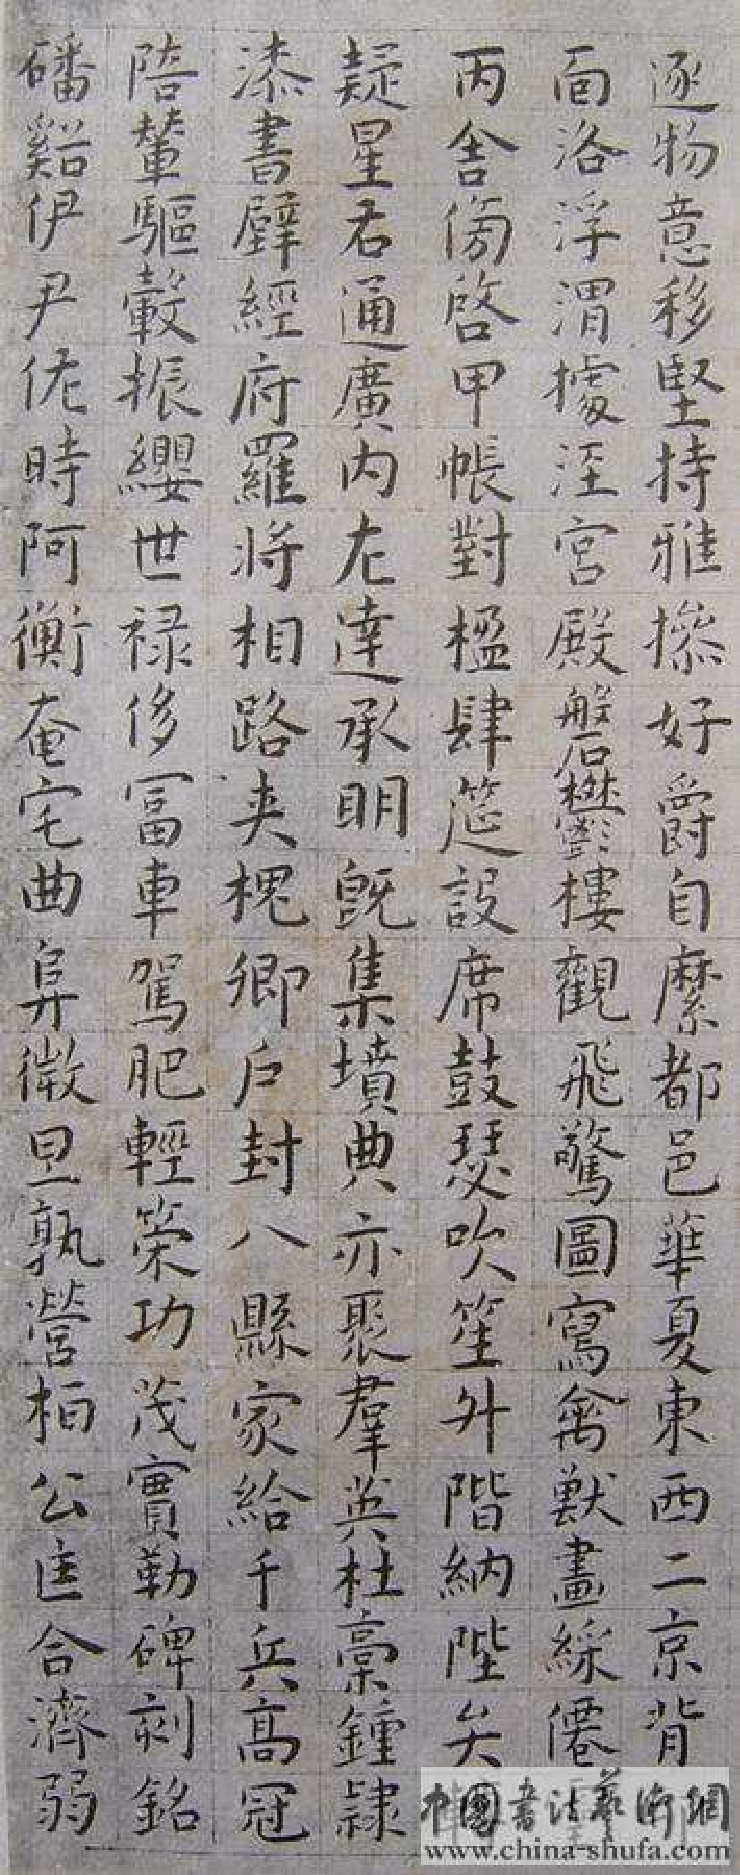 逐物意移堅持雅操好爵自縻都邑華夏東西二京背
面洛浮渭據涇宮殿磐欝樓觀飛驚圖寫禽獸畫綵僊
丙舍傍啓甲帳對楹肆筵設席鼓瑟吹笙外階納陛弁
疑星右通廣内左達承明既集墳典亦聚羣英杜稾鍾隸
漆書壁經府羅將相路夾槐卿户封八縣家給千兵高冠
陪輦驅轂振纓世禄侈冨車駕肥輕策功茂實勒碑刻銘
磻谿伊尹佐時阿衡奄宅曲阜微旦孰營桓公匡合濟弱
中國書法藝術網
www.china-shufa.com